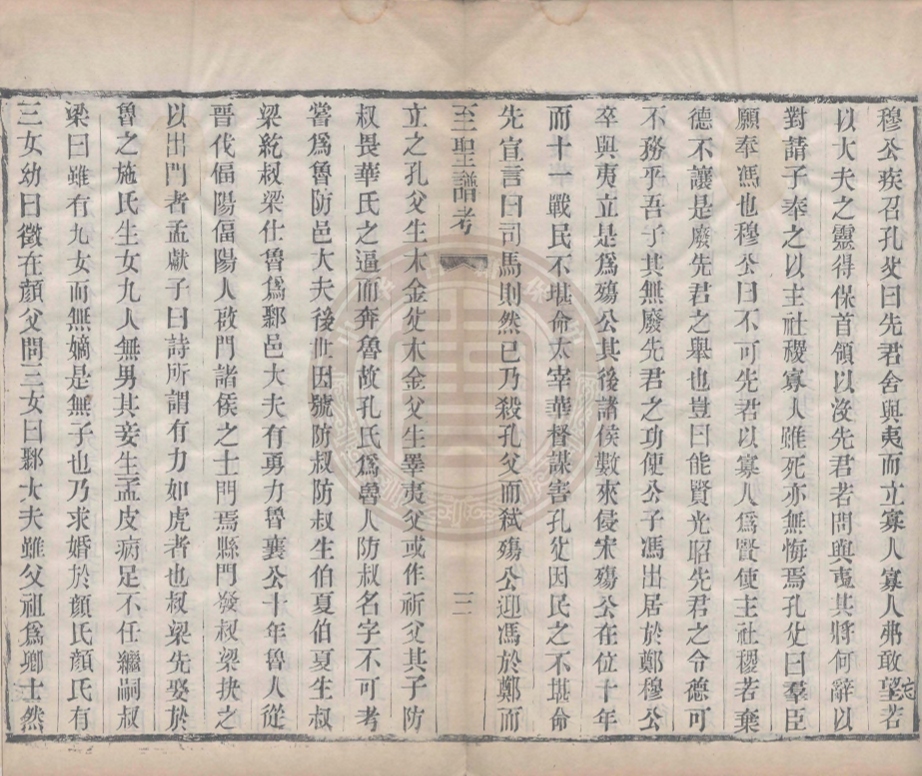 穆公疾召孔父曰先君舍與夷而立寡人寡人弗敢忘若
以大夫之靈得保首領以沒先君若問與夷其將何辭以
對請子奉之以主社稷寡人雖死亦無悔焉孔父曰羣臣
願奉馮也穆公曰不可先君以寡人爲賢使主社稷若棄
德不讓是廢先君之舉也豈曰能賢光昭先君之令德可
不務乎吾子其無廢先君之功使公子馮出居於鄭穆公
卒與夷立是爲殤公其後諸侯數來侵宋殤公在位十年
而十一戰民不堪命太宰華督謀害孔父因民之不堪命
先宣言曰司馬則然已乃殺孔父而弑殤公迎馮於鄭而
至聖譜考 三
立之孔父生木金父木金父生睪夷父或作祈父其子防
叔畏華氏之逼而奔魯故孔氏爲魯人防叔名字不可考
嘗爲魯防邑大夫後世因號防叔防叔生伯夏伯夏生叔
梁紇叔梁仕魯爲鄹邑大夫有勇力魯襄公十年魯人從
晉伐偪陽偪陽人啟門諸侯之士門焉縣門發叔梁抉之
以出門者孟獻子曰詩所謂有力如虎者也叔梁先娶於
魯之施氏生女九人無男其妾生孟皮病足不任繼嗣叔
梁曰雖有九女而無嫡是無子也乃求婚於顏氏顏氏有
三女幼曰徵在顏父問三女曰鄹大夫雖父祖爲卿士然